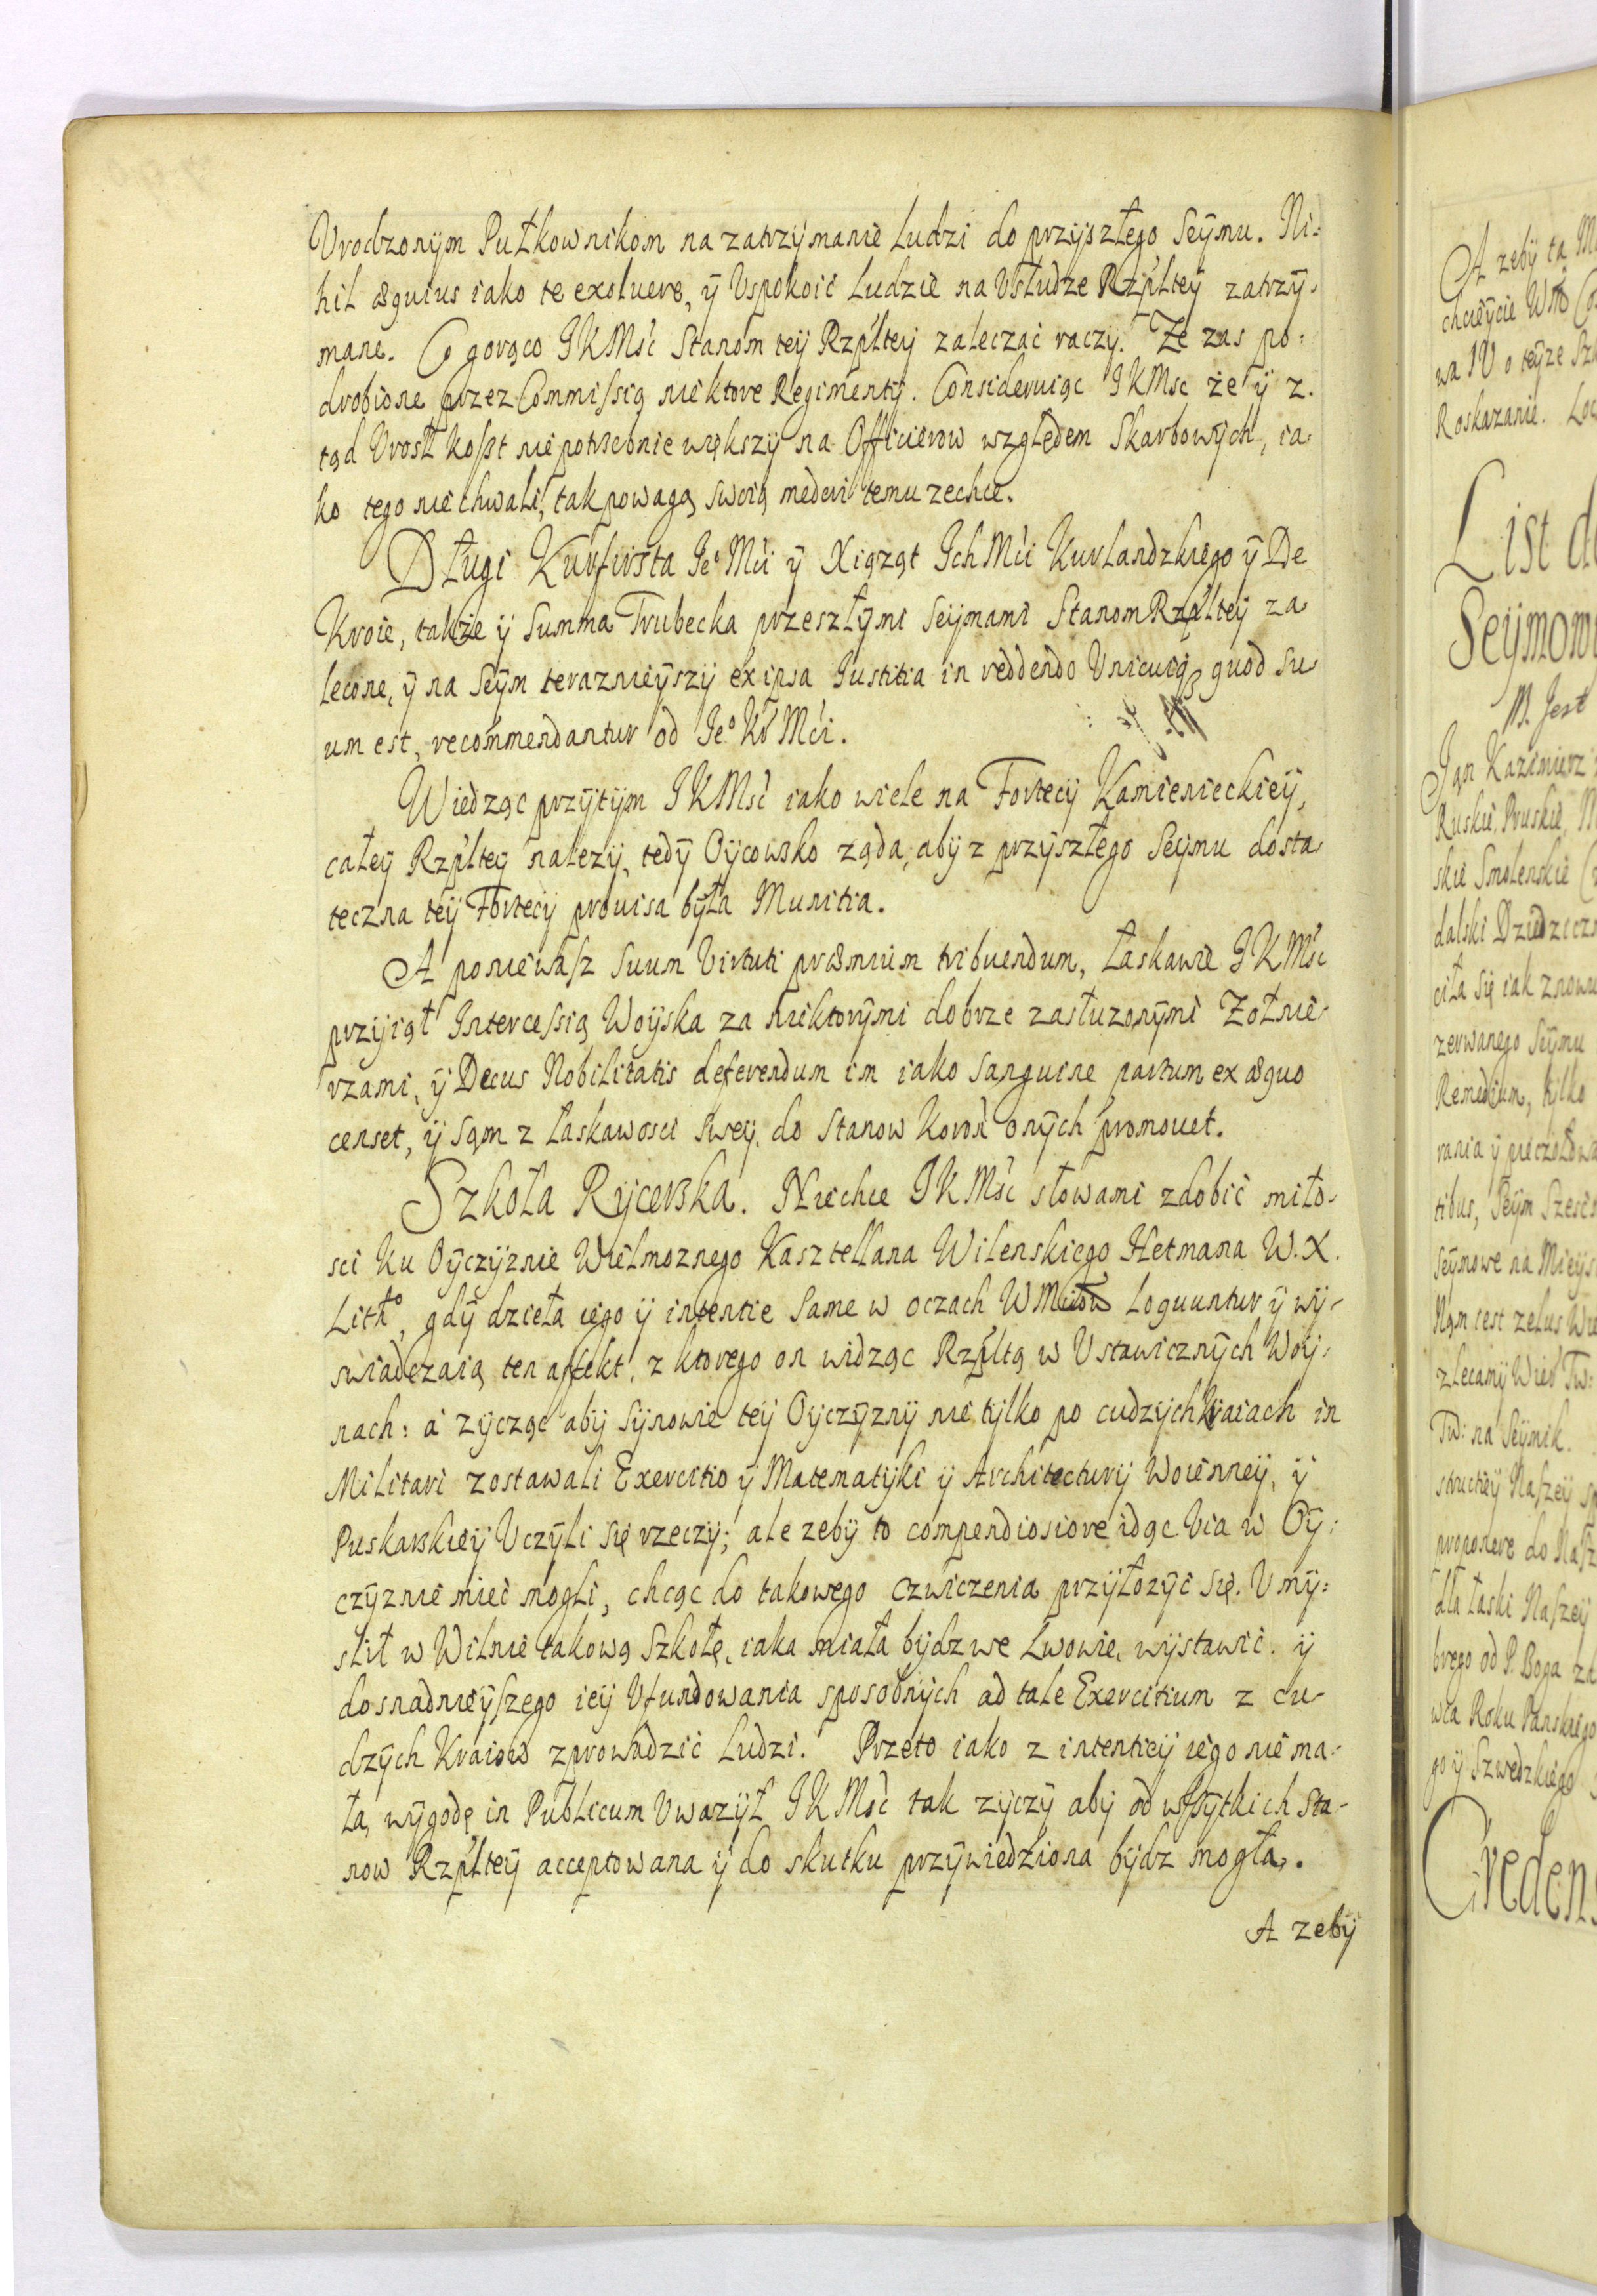 Vrodzonym Pułkownikom na zatrzymanie Ludzi do przyszłego Seymu. Ni:
hil æquius iako te exoluere, ÿ Vspokoić Ludzie na Vsłudze Rzpltey zatrzy-
mane. Co gorąco JKMść Stanom tey Rzpltey zaleczać raczy. Ze zas po:
drobione przez Commissią niektore Regimenty. Consideruiąc JKMsc że ÿ z.
tąd Vrosł koszt niepotrzebnie większy na Officierow względem Skarbowych, ia-
ko tego nie chwali, tak powagą swoią mederi temu zechce.
Długi Kurfirszta Je° Mći ÿ Xiąząt Ich Mći Kurlandzkiego ÿ De
Kroie, także ÿ Summa Trubecka przeszłymi Seymami Stanom Rzpltey za
lecone, ÿ na Seym terazneyszy ex ipsa Justitia in reddendo Vnicuiq; quod su
um est, recommendantur od Je° Kr Mći.
Wiedząc przytym JKMść iako wiele na Fortecy Kamienieckiey,
całey Rzpltey nalezy, tedy Oycowsko ząda, aby z przyszłego Seymu dosta
teczna tey Fortecy prouisa była Munitia.
A poniewasz Suum Virtuti præmium tribuendum, łaskawie JKMść
przyiął Intercessią Woyska za niektorymi dobrze zasłuzonymi Zołnie-
rzami, ÿ Decus Nobilitatis deferendum im iako sanguine partum ex æquo
censet, ÿ sąm z łaskawosci swey do Stanow Koron onych promouet.
Szkoła Rycerska. Niechce JKMść słowami zdobić miło-
sci ku Oyczyznie Wielmoznego Kasztellana Wilenskiego Hetmana W. X.
Litt°, gdy dzieła iego ÿ intentie Same w oczach WMciow Loquuntur ÿ wy-
swiadczaią ten affekt, z ktorego on widząc Rzpltą w Vstawicznych Woy:
nach: a zycząc aby Synowie tey Oyczyzny nie tylko po cudzych kraiach in
Militari zostawali Exercitio ÿ Matematyki ÿ Architectury Woienney, ÿ
Puskarskiey Vczyli się rzeczy; ale zeby to compendiosiore idąc Via w Oy:
czyznie mieć mogli, chcąc do takowego czwiczenia przyłozyć się. Vmy:
slił w Wilnie takową Szkołę, iaka miała bydz we Lwowie, wystawić. ÿ
dosnadnieyszego iey Vfundowania sposobnych ad tale Exercitium z cu-
dzych Kraiow zprowadzić Ludzi. Przeto iako z intenticy iego nie ma-
łą wygodę in Publicum Vwazył JKMść tak zyczy aby od wszytkich Sta-
now Rzpltey acceptowana ÿ do skutku przywiedziona bydz mogła.
A zeby
A zeby ta
chcieycie
wa IV o teyze
Roskazanie.
List d
Seymow
M. Jest
Jan Kazimierz
Ruskie, Pruskie,
skie Smolenskie
dalski Dziedziczn
ciła się iak znowu
zerwanego Seymu
Remedium, tylko
rania ÿ pieczołowa
tibus, Seym Szesć
Seymowe na Mieys
Nąm iest zelus
zlecamy
Tw: na Seymik.
structiey Naszey
proponere do Nasz
dla łaski Naszey
brego od P. Boga
Roku Panskiego
go ÿ Szwedzkiego
Credens